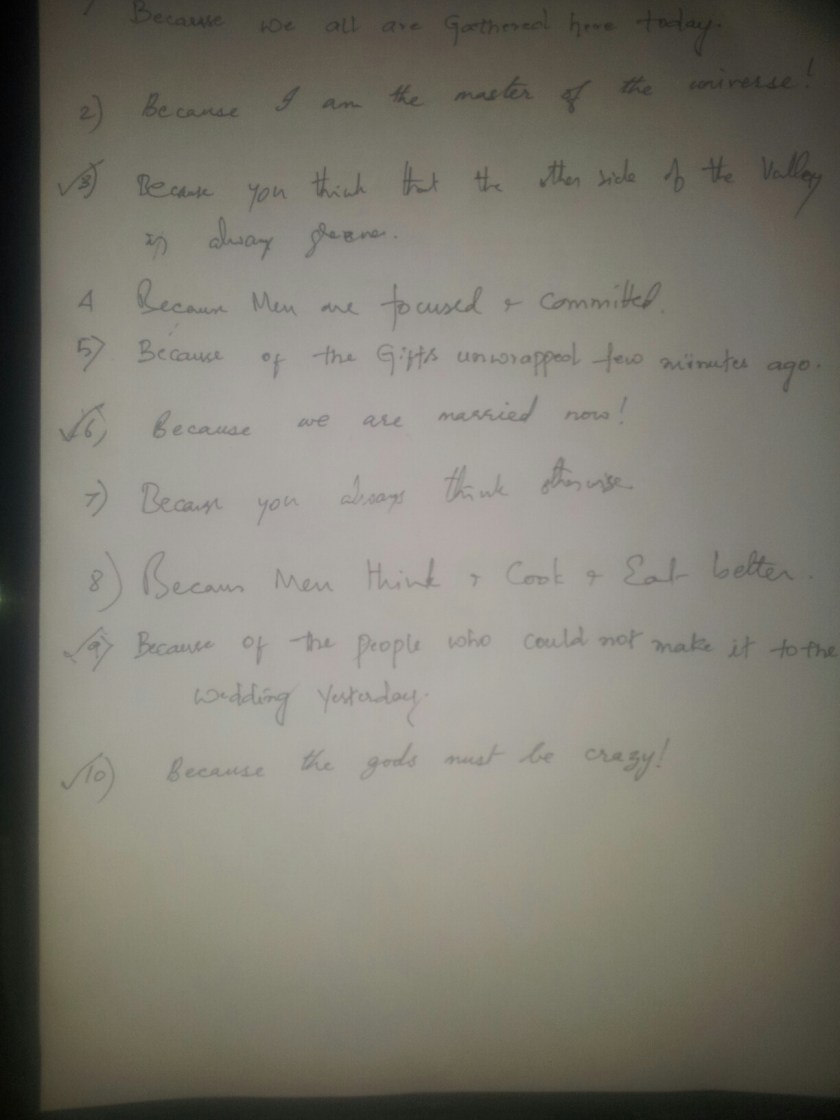 Because we all are Gathered here today.
2) Because I am the master of the universe!
✓3) Because you think that the other side of the Valley
is always greener.
4 Because Men are focused & Committed.
5) Because of the Gifts unwrapped few minutes ago.
✓6) Because we are married now!
7) Because you always think otherwise
8) Because Men think & Cook & Eat better.
✓9) Because of the people who could not make it to the
wedding Yesterday.
✓10) Because the gods must be crazy!